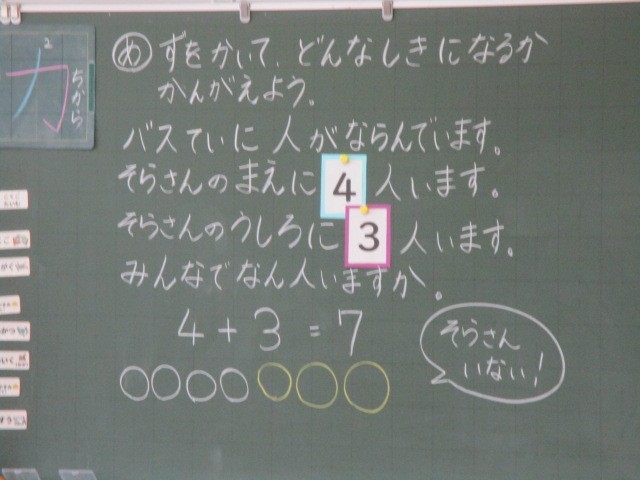 2
力
ちから
め ずをかいて、どんなしきになるか
かんがえよう。
バスていに 人がならんでいます。
そらさんのまえに 4 人います。
そらさんのうしろに 3 人います。
みんなでなん人いますか。
4+3=7
そらさん
いない!